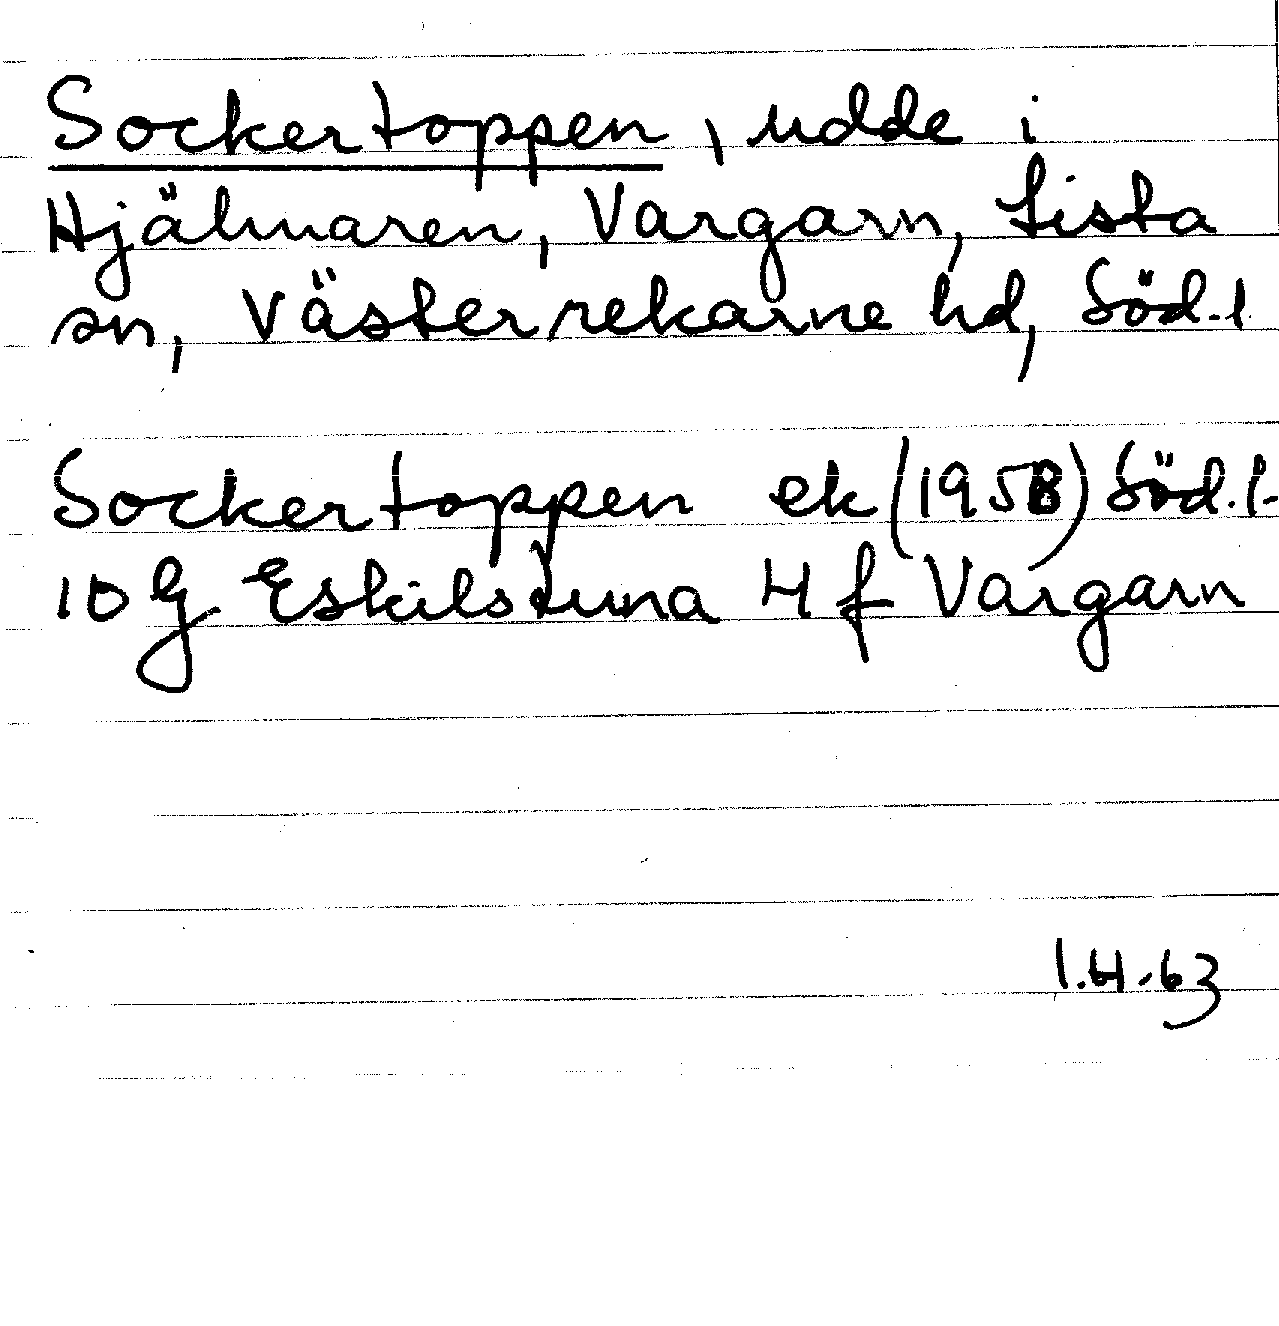 Sockertoppen, udde i
Hjälmaren, Vargarn, Lista
sn, Västerrekarne hd, Söd.l.
Sockertoppen ek (1958) Söd.l.
10 G Eskilstuna 4 f Vargarn
1.4.63